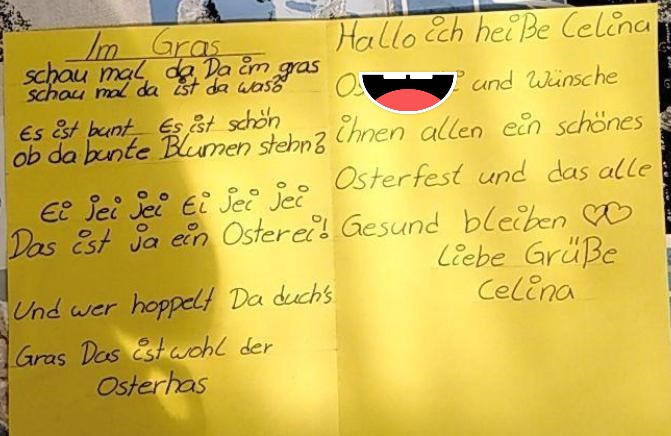 Im Gras
schau mal da Da im gras
schau mal da ist da was?
Es ist bunt Es ist schön
ob da bunte Blumen stehn?
Ei jei jei Ei jei jei
Das ist ja ein Osterei!
Und wer hoppelt Da duch's
Gras Das ist wohl der
Osterhas
Hallo ich heiße Celina
und Wünsche
ihnen allen ein schönes
Osterfest und das alle
Gesund bleiben
Liebe Grüße
Celina